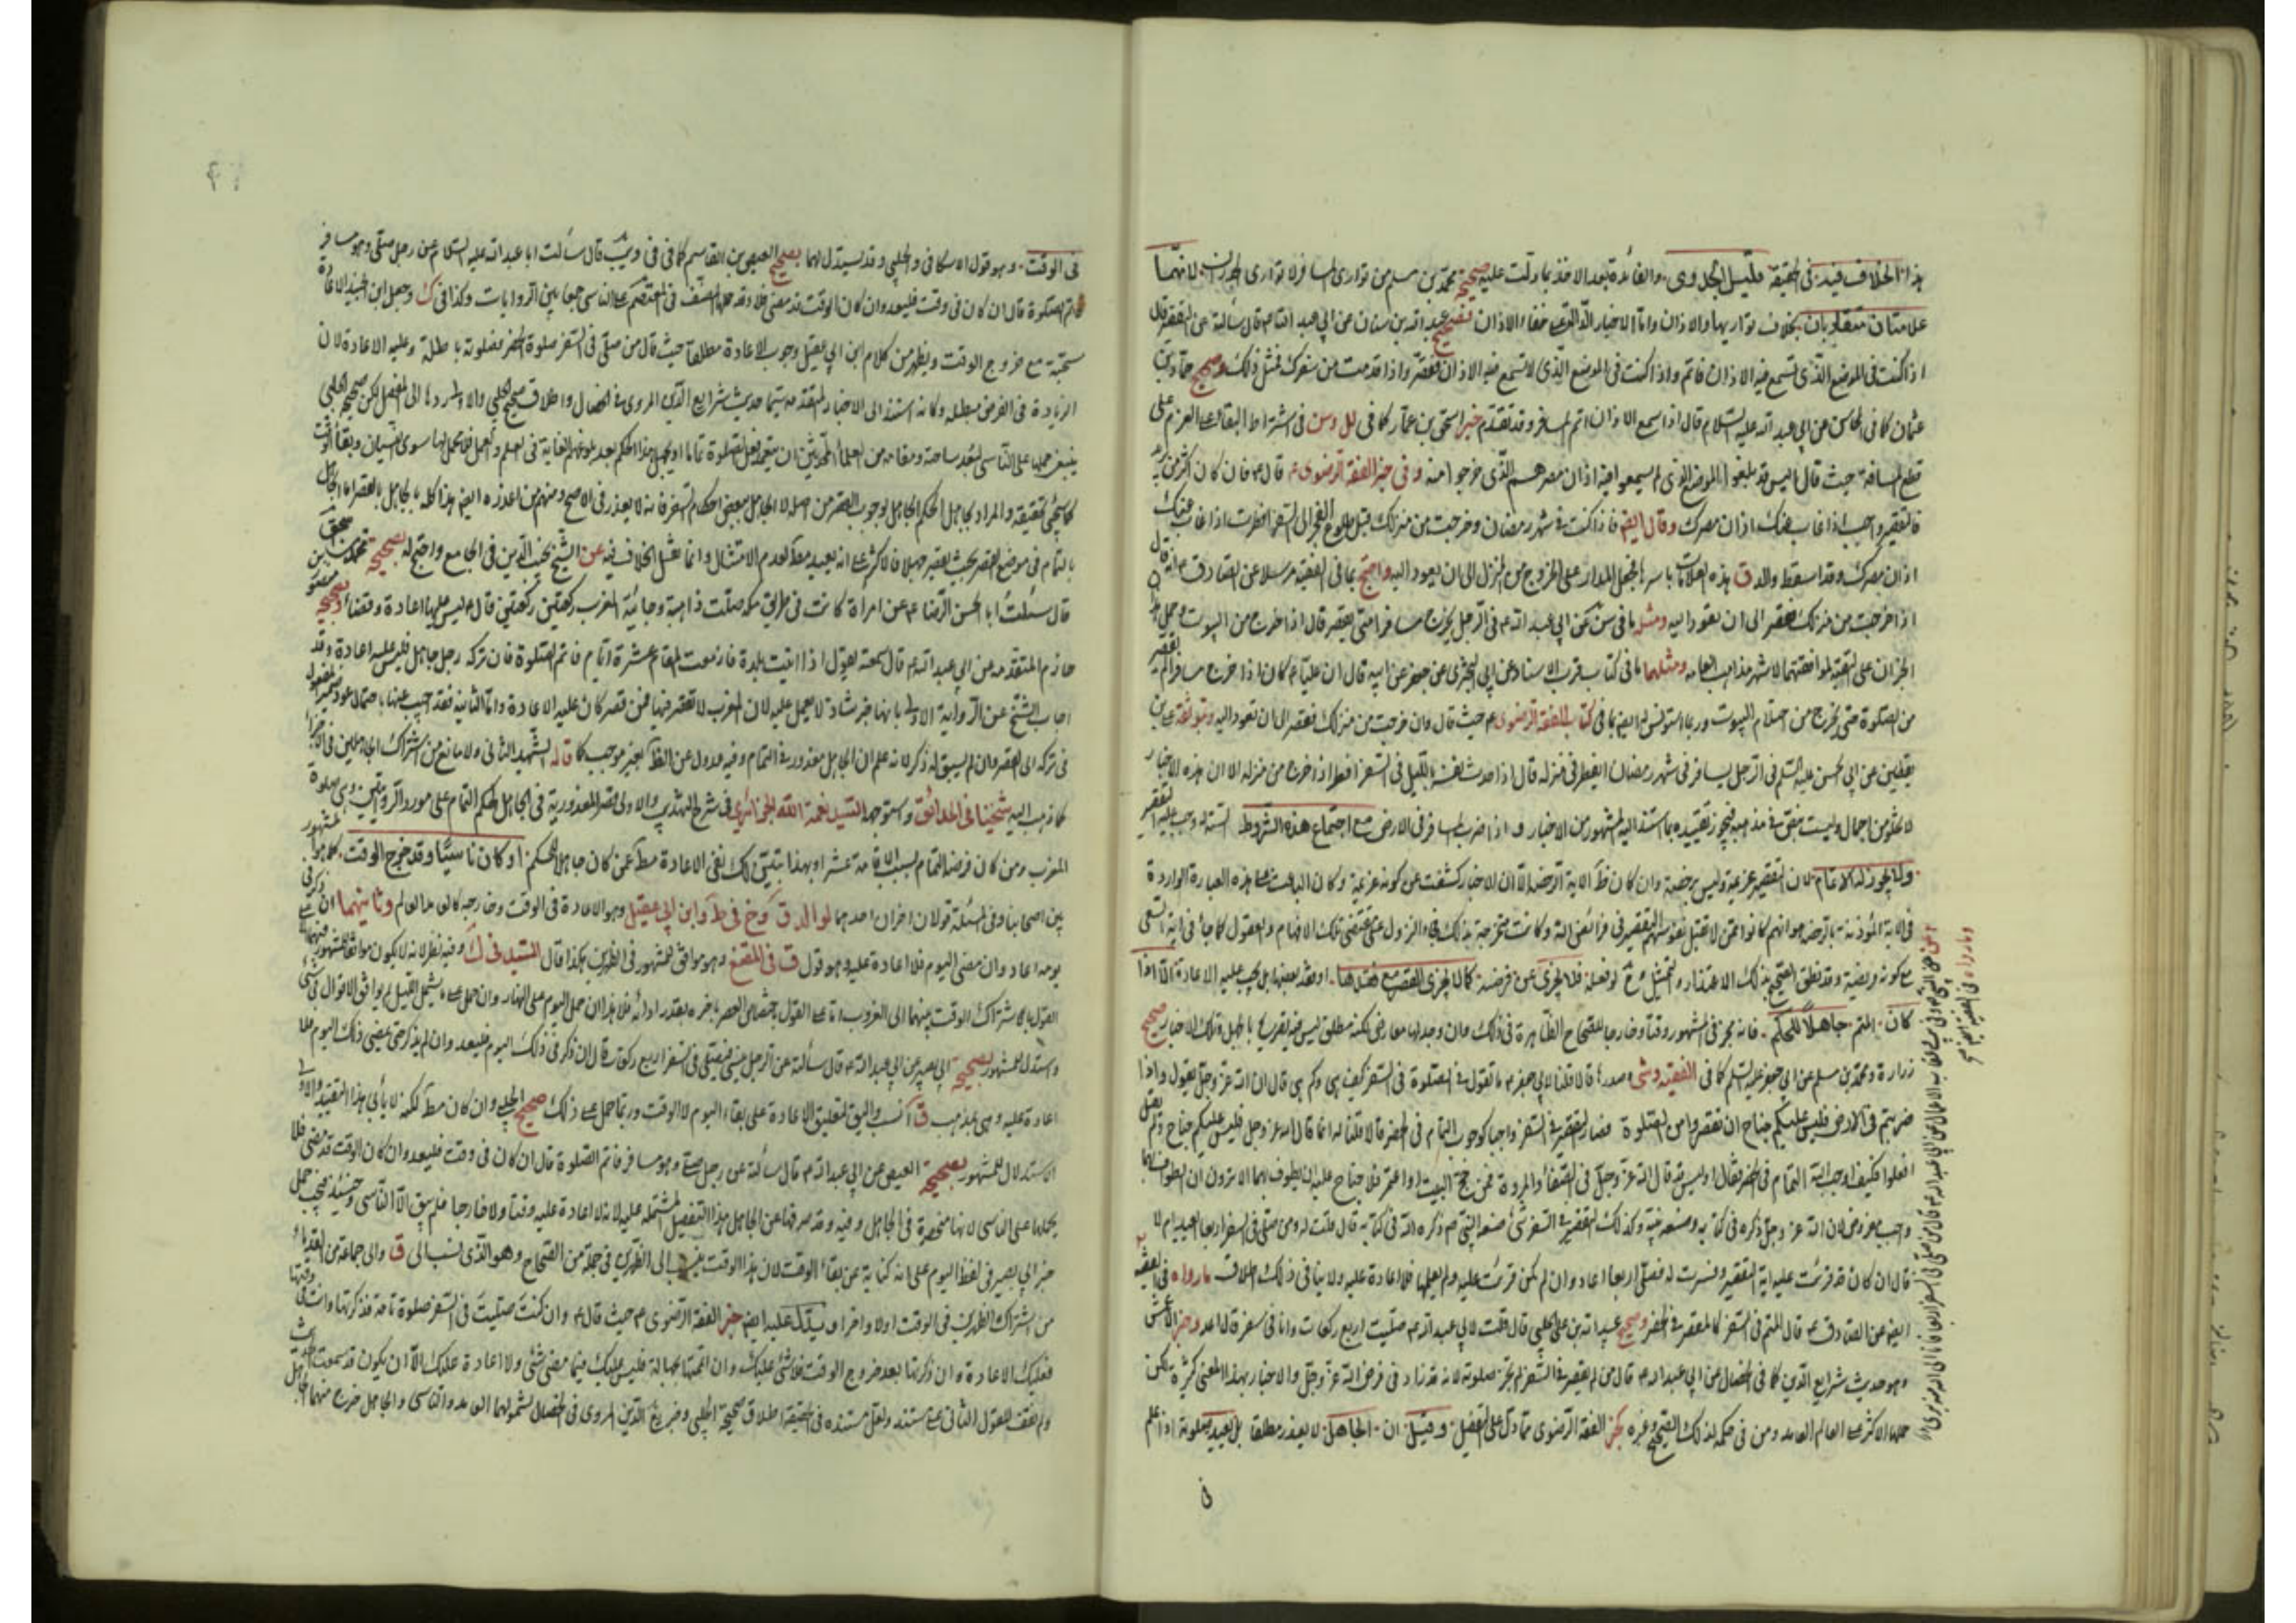 هذا الخلاف فيه في الحقيقة قليل الجدوى والفائدة بعد الاخذ بما دلت عليه صحيحة محمد بن مسلم من توارى المسافر لا توارى الجدران لانهما
علامتان متقاربان بخلاف تواريها والاذان واما الاخبار الدالة على خفاء الاذان فصحيح عبد الله بن سنان عن ابي عبد الله ع قال سألته عن التقصير قال
اذا كنت في الموضع الذي تسمع فيه الاذان فاتم واذا كنت في الموضع الذي لا تسمع فيه الاذان فقصر واذا قدمت من سفرك فمثل ذلك وصحيح حماد بن
عثمان كما في المحاسن عن ابي عبد الله عليه السلام قال اذا سمع الاذان اتم المسافر وقد تقدم خبر اسحق بن عمار كما في لل وسن في اشتراط البقاء على العزم على
قطع المسافة حيث قال اليس قد بلغوا الموضع الذي لا يسمعون فيه اذان مصرهم الذي خرجوا منه وفي خبر الفقه الرضوي ع قال ع فان كان اكثر من بريد
فالتقصير واجب اذا غاب عنك اذان مصرك وقال ايضا فاذا كنت في شهر رمضان وخرجت من منزلك قبل طلوع الفجر الى السفر افطرت اذا غاب عنك
اذان مصرك وقد اسقط والد ق هذه العلامات باسرها فجعل المدار على الخروج من المنزل الى ان يعود اليه واحتج بما في الفقيه مرسلا عن الصادق ع انه قال
اذا خرجت من منزلك فقصر الى ان تعود اليه ومثله ما في سن عن ابي عبد الله ع في الرجل يخرج مسافرا متى يقصر قال اذا خرج من البيوت وحمل
الخبران على التقية لموافقتهما لاشهر مذاهب العامة ومثلهما ما في كتاب قرب الاسناد عن ابي البختري عن جعفر عن ابيه قال ان عليا ع كان اذا خرج مسافرا لم يقصر
من الصلوة حتى يخرج من احتلام البيوت وربما استونس له ايضا بما في كتاب الفقه الرضوي ع حيث قال وان خرجت من منزلك فقصر الى ان تعود اليه وبموثقة علي بن
يقطين عن ابي الحسن عليه السلم في الرجل يسافر في شهر رمضان ايفطر في منزله قال اذا حدث نفسه بالليل في السفر افطر اذا خرج من منزله الا ان هذه الاخبار
لا تخلو من اجمال وليست بنص في مذهبه فيجوز تقييده بما استند اليه المشهور من الاخبار ف اذا ضرب المسافر في الارض مع اجتماع هذه الشروط الستة وجب عليه التقصير
ولا يجوز له الاتمام لان التقصير عزيمة وليس برخصة وان كان ظ الاية الرخصة الا ان الاخبار كشفت عن كونه عزيمة وكان الباعث على هذه العبارة الواردة
في الاية المؤذنة بالرخصة هو انهم كانوا ممن لا تقبل نفوسهم التقصير في فرائض الله وكانت متحرجة بذلك فجاء النزول على مقتضى تلك الافهام والعقول كما جاء في اية السعي
مع كونه فريضة وقد نطق الصحيح بذلك الاعتذار والتمثيل فح لو فعله فلا يجزى عن فرضه كما لا يجزى القصر مع فقدها او فقد بعضها بل يجب عليه الاعادة الا اذا
كان المتم جاهلا للحكم فانه يجزى في المشهور وقتا وخارجا للصحاح الظاهرة في ذلك وان وجد لها معارض لكنه مطلق ليس فيه تصريح بالجهل وتلك الاخبار صحيح
زرارة ومحمد بن مسلم عن ابي جعفر عليه السلم كما في الفقيه وشى صدرا قالا قلنا لابي جعفر ع ما تقول في الصلوة في السفر كيف هي وكم هي قال ان الله عز وجل يقول واذا
ضربتم في الارض فليس عليكم جناح ان تقصروا من الصلوة فصار التقصير في السفر واجبا كوجوب التمام في الحضر قالا قلنا له انما قال الله عز وجل فليس عليكم جناح ولم يقل
افعلوا فكيف اوجب الله التمام في الحضر فقال اوليس قد قال الله عز وجل في الصفا والمروة فمن حج البيت او اعتمر فلا جناح عليه ان يطوف بهما الا ترون ان الطواف بهما
واجب مفروض لان الله عز وجل ذكره في كتابه وصنعه نبيه وكذلك التقصير في السفر شئ صنعه النبي ص وذكره الله في كتابه قال قلت له ومن صلى في السفر اربعا ايعيد ام لا
قال ان كان قد قرئت عليه اية التقصير وفسرت له فصلى اربعا اعاد وان لم تكن قرئت عليه ولم يعلمها فلا اعادة عليه ولا ينافي ذلك اطلاق ما رواه في الفقيه
ايضا عن الصادق ع قال المتم في السفر كالمقصر في الحضر وصحيح عبيد الله بن علي الحلبي قال قلت لابي عبد الله ع صليت اربع ركعات وانا في سفر قال اعد وخبر الاعمش
وهو حديث شرايع الدين كما في الخصال عن ابي عبد الله ع قال من لم يقصر في السفر لم تجز صلوته لانه قد زاد في فرض الله عز وجل والاخبار بهذا المعنى كثيرة لكن
حملها الاكثر على العالم العامد ومن في حكمه لذلك الصحيح وغيره كخبر الفقه الرضوي مما دل على التفصيل وقيل ان الجاهل لا يعذر مطلقا بل يعيد صلوته اذا علم
في
وما رواه في الفقيه
في الوقت وهو قول الاسكافي والحلبي وقد يستدل لهما بصحيح العيص بن القاسم كما في في ويب قال سألت ابا عبد الله عليه السلام عن رجل صلى وهو مسافر
فاتم الصلوة قال ان كان في وقت فليعد وان كان الوقت قد مضى فلا وقد حملها المصنف في المعتصم على الناسي جمعا بين الروايات وكذا في ك وجعل ابن الجنيد الاعادة
مستحبة مع خروج الوقت ويظهر من كلام ابن ابي عقيل وجوب الاعادة مطلقا حيث قال من صلى في السفر صلوة الحضر فصلوته باطلة وعليه الاعادة لان
الزيادة في الفرض مبطلة وكانه استند الى الاخبار المتقدمة سيما حديث شرايع الدين المروي في الخصال واطلاق صحيح الحلبي والاولى ردها الى المفصل لكن صحيح الحلبي
ينبغي حملها على الناسي لبعد ساحته ومقامه من العلماء المحدثين ان يتعمد فعل الصلوة تماما او يجهل هذا الحكم بعد بلوغهم الغاية في العلم والعمل فلا محمل لها سوى النسيان وبقاء الوقت
كما سيجئ تحقيقه والمراد بجاهل الحكم الجاهل بوجوب القصر من اصله لا الجاهل ببعض احكام السفر فانه لا يعذر في الاصح ومنهم من اعذره ايضا هذا كله بالجاهل بالقصر اما الجاهل
بالتمام في موضع القصر بحيث يقصر جهلا فالاكثر على انه يعيد مطلقا لعدم الامتثال وانما نقل الخلاف فيه عن الشيخ نجيب الدين في الجامع واحتج له بصحيحة محمد بن اسحق
قال سئلت ابا الحسن الرضا ع عن امرأة كانت في طريق مكة صلت ذاهبة وجائية المغرب ركعتين ركعتين قال ع ليس عليها اعادة وقضاء وبصحيح منصور بن
حازم المتقدمة عن ابي عبد الله ع قال سمعته يقول اذا اتيت بلدة فازمعت المقام عشرة ايام فاتم الصلوة فان تركه رجل جاهل فليس عليه اعادة وقد
اجاب الشيخ عن الرواية الاولى بانها خبر شاذ لا يعمل عليه لان المغرب لا تقصر فيها فمن قصر كان عليه الاعادة واما الثانية فقد اجيب عنها باحتمال عود ضمير المفعول
في تركه الى القصر وان لم يسبق له ذكر لانه علم ان الجاهل معذور في التمام وفيه عدول عن الظ بغير موجب كما قاله الشهيد الثاني ولا مانع من اشتراك الجاهلين في الاجزاء
كما ذهب اليه شيخنا في الحدائق واستوجهه السيد نعمة الله الجزائري في شرح التهذيب والاولى قصر المعذورية في الجاهل بحكم التمام على مورد الروايتين وهي صلوة
المغرب ومن كان فرضه التمام بسبب الاقامة عشرا وبهذا يتبين لك نفي الاعادة مطلقا عمن كان جاهلا بالحكم او كان ناسيا وقد خرج الوقت كما هو المشهور
بين اصحابنا وفي المسئلة قولان اخران احدهما لوالد ق وخ في ط وابن ابي عقيل وهو الاعادة في الوقت وخارجه كالعامد العالم وثانيهما ان ذكر في
يومه اعاد وان مضى اليوم فلا اعادة عليه وهو قول ق في المقنع وهو موافق للمشهور في الظهرين هكذا قال السيد في ك وفيه نظر لانه لا يكون موافقا للمشهور فيهما الا على
القول باشتراك الوقت بينهما الى الغروب اما على القول باختصاص العصر باخره بقدر ادائه فلا هذا ان حمل اليوم على النهار وان حمل على ما يشمل الليل لم يوافق الاقوال في شئ
واستدل للمشهور بصحيحة ابي بصير عن ابي عبد الله ع قال سألته عن الرجل ينسى فيصلي في السفر اربع ركعات قال ان ذكر في ذلك اليوم فليعد وان لم يذكر حتى يمضي ذلك اليوم فلا
اعادة عليه وهي بمذهب ق انسب واليق لتعليق الاعادة على بقاء اليوم لا الوقت وربما حمل على ذلك صحيح الحلبي وان كان مطلقا لكنه لا يأبى هذا التقييد والاولى
الاستدلال للمشهور بصحيحة العيص عن ابي عبد الله ع قال سألته عن رجل صلى وهو مسافر فاتم الصلوة قال ان كان في وقت فليعد وان كان الوقت قد مضى فلا
بحملها على الناسي لانها منحصرة في الجاهل وفيه وقد صرفناه عن الجاهل بهذا التفصيل المشتملة عليه لانه لا اعادة عليه وقتا ولا خارجا فلم يبق الا الناسي وحينئذ فيجب حمل
خبر ابي بصير في لفظ اليوم على انه كناية عن بقاء الوقت لان هذا الوقت ينسب الى الظهرين في جملة من الصحاح وهو الذي نسب الى ق والى جماعة من القدماء
من اشتراك الظهرين في الوقت اولا واخرا ويدل عليه ايضا خبر الفقه الرضوي ع حيث قال ع وان كنت صليت في السفر صلوة تامة فذكرتها وانت في وقتها
فعليك الاعادة وان ذكرتها بعد خروج الوقت فلا شئ عليك وان اتممتها بجهالة فليس عليك فيما مضى شئ ولا اعادة عليك الا ان يكون قد سمعت الحديث
ولم نقف للقول الثاني على مستند ولعل مستنده في الحقيقة اطلاق صحيحة الحلبي وخبر شرايع الدين المروي في الخصال لشمولهما العامد والناسي والجاهل خرج منهما الجاهل